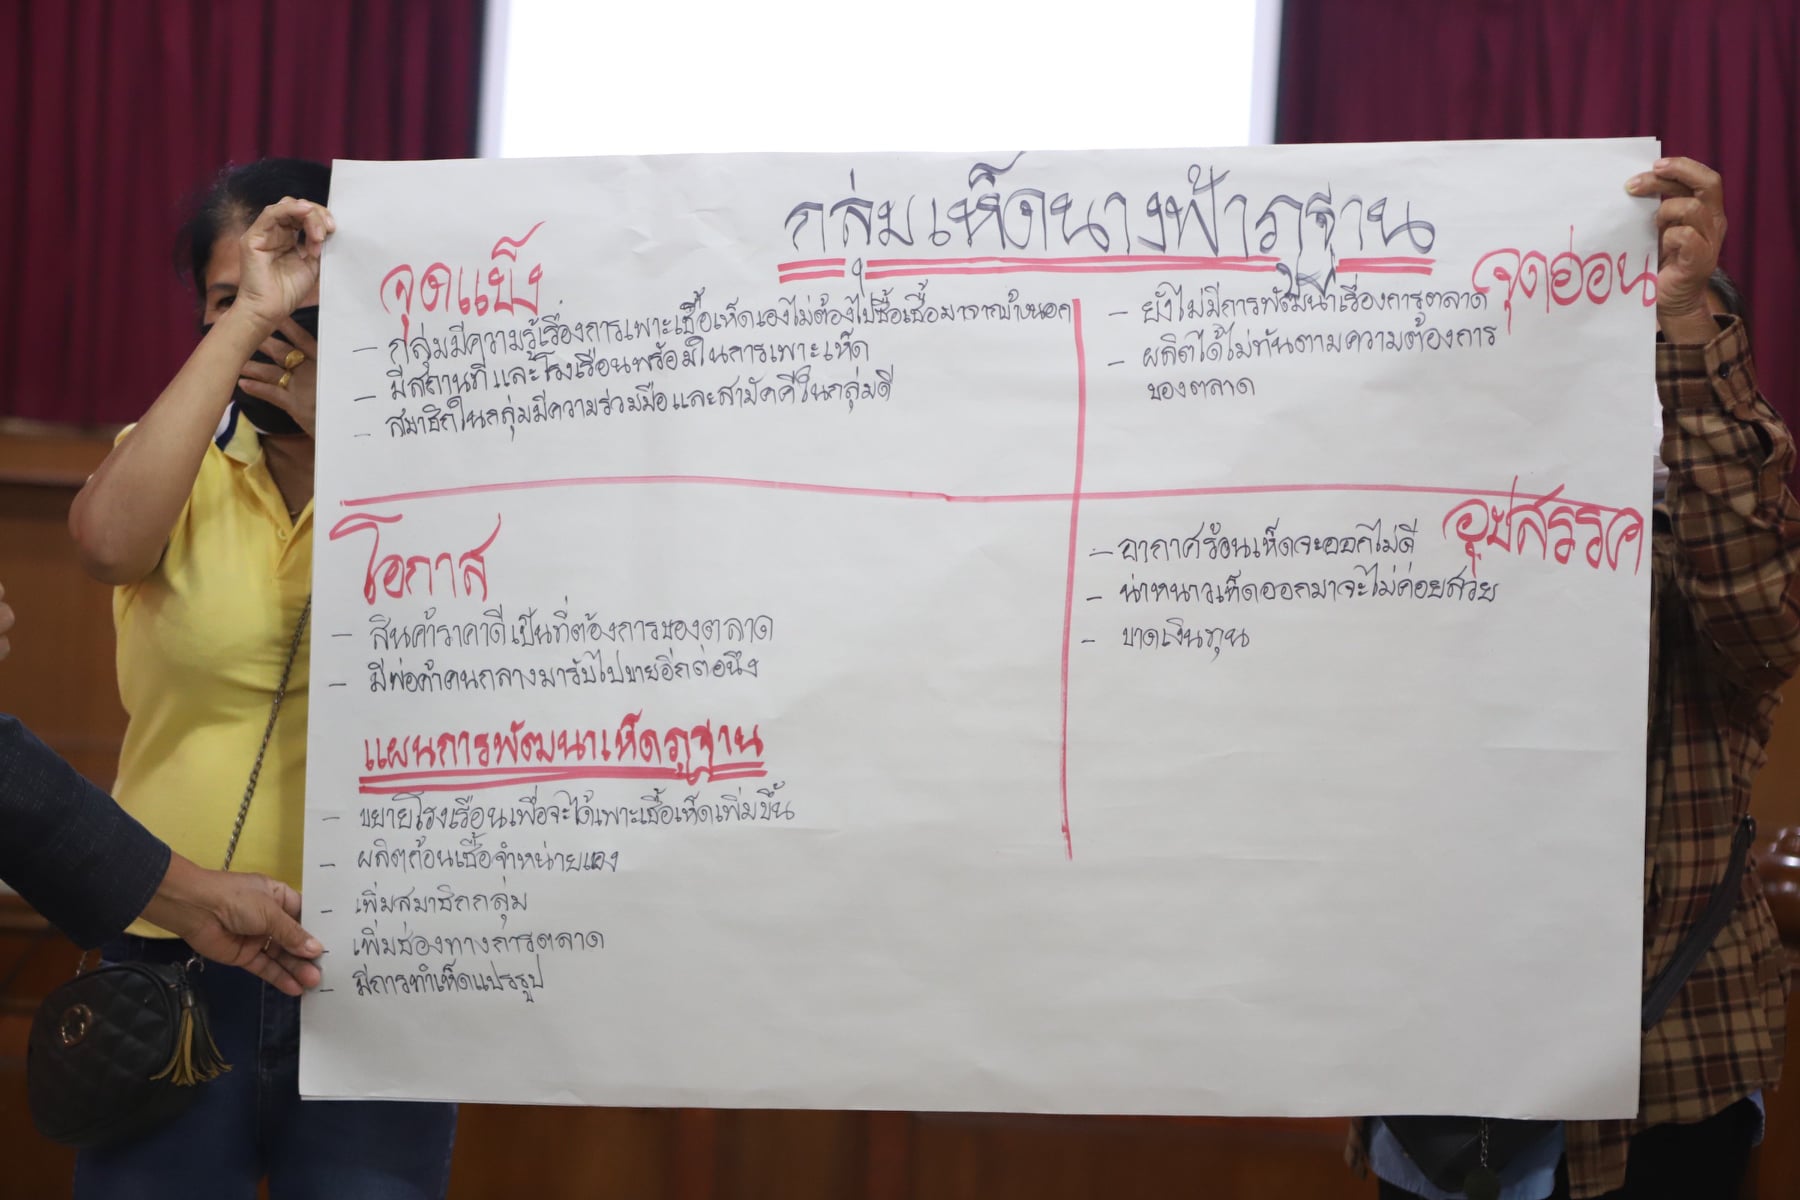 กลุ่มเห็ดนางฟ้าภูฐาน
จุดแข็ง
- กลุ่มมีความรู้เรื่องการเพาะเชื้อเห็ดเองไม่ต้องไปซื้อเชื้อมาจากข้างนอก
- มีสถานที่และโรงเรือนพร้อมในการเพาะเห็ด
- สมาชิกในกลุ่มมีความร่วมมือและสามัคคีในกลุ่มดี
จุดอ่อน
- ยังไม่มีการพัฒนาเรื่องการตลาด
- ผลิตได้ไม่ทันตามความต้องการ
ของตลาด
โอกาส
- สินค้าราคาดีเป็นที่ต้องการของตลาด
- มีพ่อค้าคนกลางมารับไปขายอีกต่อนึง
อุปสรรค
- อากาศร้อนเห็ดจะออกไม่ดี
- น่าหนาวเห็ดออกมาจะไม่ค่อยสวย
- ขาดเงินทุน
แผนการพัฒนาเห็ดภูฐาน
- ขยายโรงเรือนเพื่อจะได้เพาะเชื้อเห็ดเพิ่มขึ้น
- ผลิตก้อนเชื้อจำหน่ายเอง
- เพิ่มสมาชิกกลุ่ม
- เพิ่มช่องทางการตลาด
- มีการทำเห็ดแปรรูป